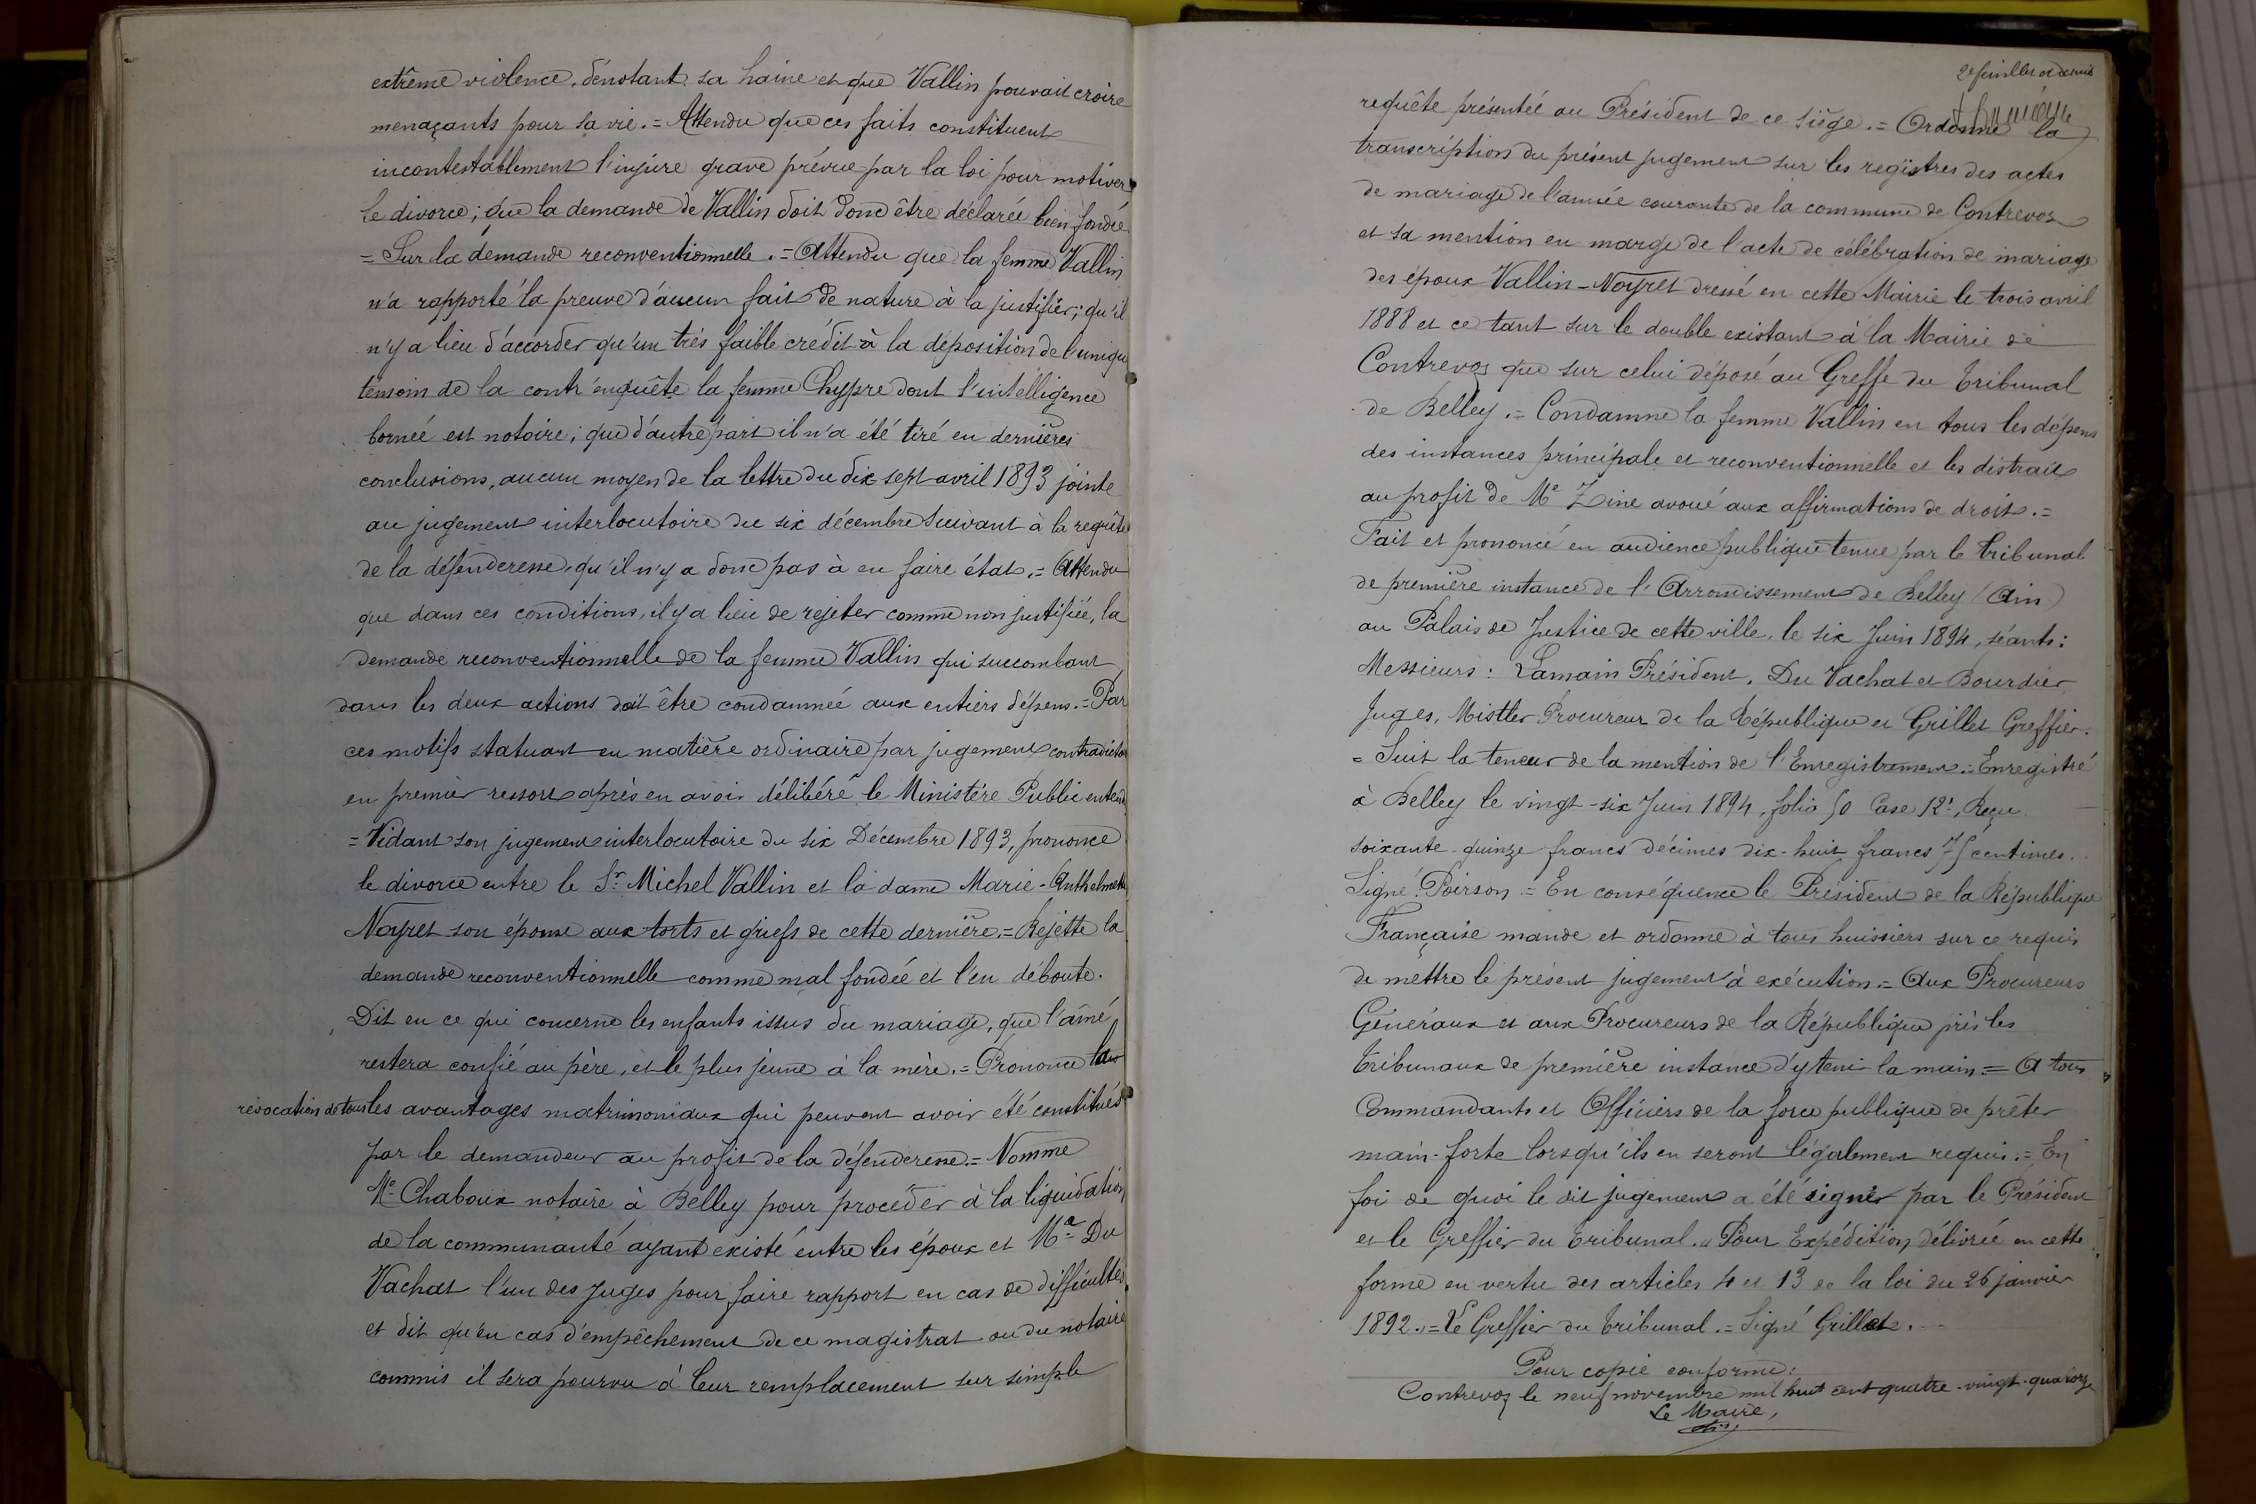 extrême violence, dénotant sa haine et que Vallin pouvait croire
menaçants pour sa vie. = Attendu que ces faits constituent
incontestablement l'injure grave prévue par la loi pour motiver
le divorce; que la demande de Vallin doit donc être déclarée bien fondée
= Sur la demande reconventionnelle. = Attendu que la femme Vallin
n'a rapporté la preuve d'aucun fait de nature à la justifier; qu'il
n'y a lieu d'accorder qu'un très faible crédit à la déposition de l'unique
témoin de la contr'enquête la femme Chypre dont l'intelligence
bornée est notoire; que d'autre part il n'a été tiré en dernières
conclusions, aucun moyen de la lettre du dix sept avril 1893 jointe
au jugement interlocutoire du six décembre suivant à la requête
de la défenderesse, qu'il n'y a donc pas à en faire état. = Attendu
que dans ces conditions, il y a lieu de rejeter comme non justifiée, la
demande reconventionnelle de la femme Vallin qui succombant
dans les deux actions doit être condamnée aux entiers dépens. = Par
ces motifs statuant en matière ordinaire par jugement contradictoire
en premier ressort après en avoir délibéré le Ministère Public entendu
= Vidant son jugement interlocutoire du six Décembre 1893, prononce
le divorce entre le Sr Michel Vallin et la dame Marie-Anthelmette
Noyret son épouse aux torts et griefs de cette dernière. = Rejette la
demande reconventionnelle comme mal fondée et l'en déboute.
Dit en ce qui concerne les enfants issus du mariage, que l'aîné
restera confié au père, et le plus jeune à la mère. = Prononce la
révocation de tous les avantages matrimoniaux qui peuvent avoir été constitués
par le demandeur au profit de la défenderesse. = Nomme
Me Chaboux notaire à Belley pour procéder à la liquidation
de la communauté ayant existé entre les époux et Mr Du
Vachat l'un des juges pour faire rapport en cas de difficultés
et dit qu'en cas d'empêchement de ce magistrat ou du notaire
commis il sera pourvu à leur remplacement sur simple
2e feuillet et dernier
requête présentée au Président de ce siège. = Ordonne la
transcription du présent jugement sur les registres des actes
de mariage de l'année courante de la commune de Contrevoz
et sa mention en marge de l'acte de célébration de mariage
des époux Vallin-Noyret dressé en cette Mairie le trois avril
1888 et ce tant sur le double existant à la Mairie de
Contrevoz que sur celui déposé au Greffe du tribunal
de Belley. = Condamne la femme Vallin en tous les dépens
des instances principale et reconventionnelle et les distrait
au profit de Me Zine avoué aux affirmations de droit. =
Fait et prononcé en audience publique tenue par le tribunal
de première instance de l'Arrondissement de Belley (Ain)
au Palais de Justice de cette ville, le six Juin 1894, séants:
Messieurs: Lamain Président, Du Vachat et Bourdier
Juges, Mistler Procureur de la République et Grillet Greffier.
= Suit la teneur de la mention de l'Enregistrement. = Enregistré
à Belley le vingt-six Juin 1894, folio 50 Case 12. Reçu
soixante-quinze francs décimes dix-huit francs 75 centimes.
Signé: Poirson = En conséquence le Président de la République
Française mande et ordonne à tous huissiers sur ce requis
de mettre le présent jugement à exécution. = Aux Procureurs
Généraux et aux Procureurs de la République près les
tribunaux de première instance d'y tenir la main = A tous
Commandants et Officiers de la force publique de prêter
main-forte lorsqu'ils en seront légalement requis. = En
foi de quoi le dit jugement a été signé par le Président
et le Greffier du tribunal. " Pour Expédition délivrée en cette
forme en vertu des articles 4 et 13 de la loi du 26 janvier
1892. = Le Greffier du tribunal. = Signé Grillet.
Pour copie conforme:
Contrevoz le neuf novembre mil huit cent quatre-vingt-quatorze
Le Maire,